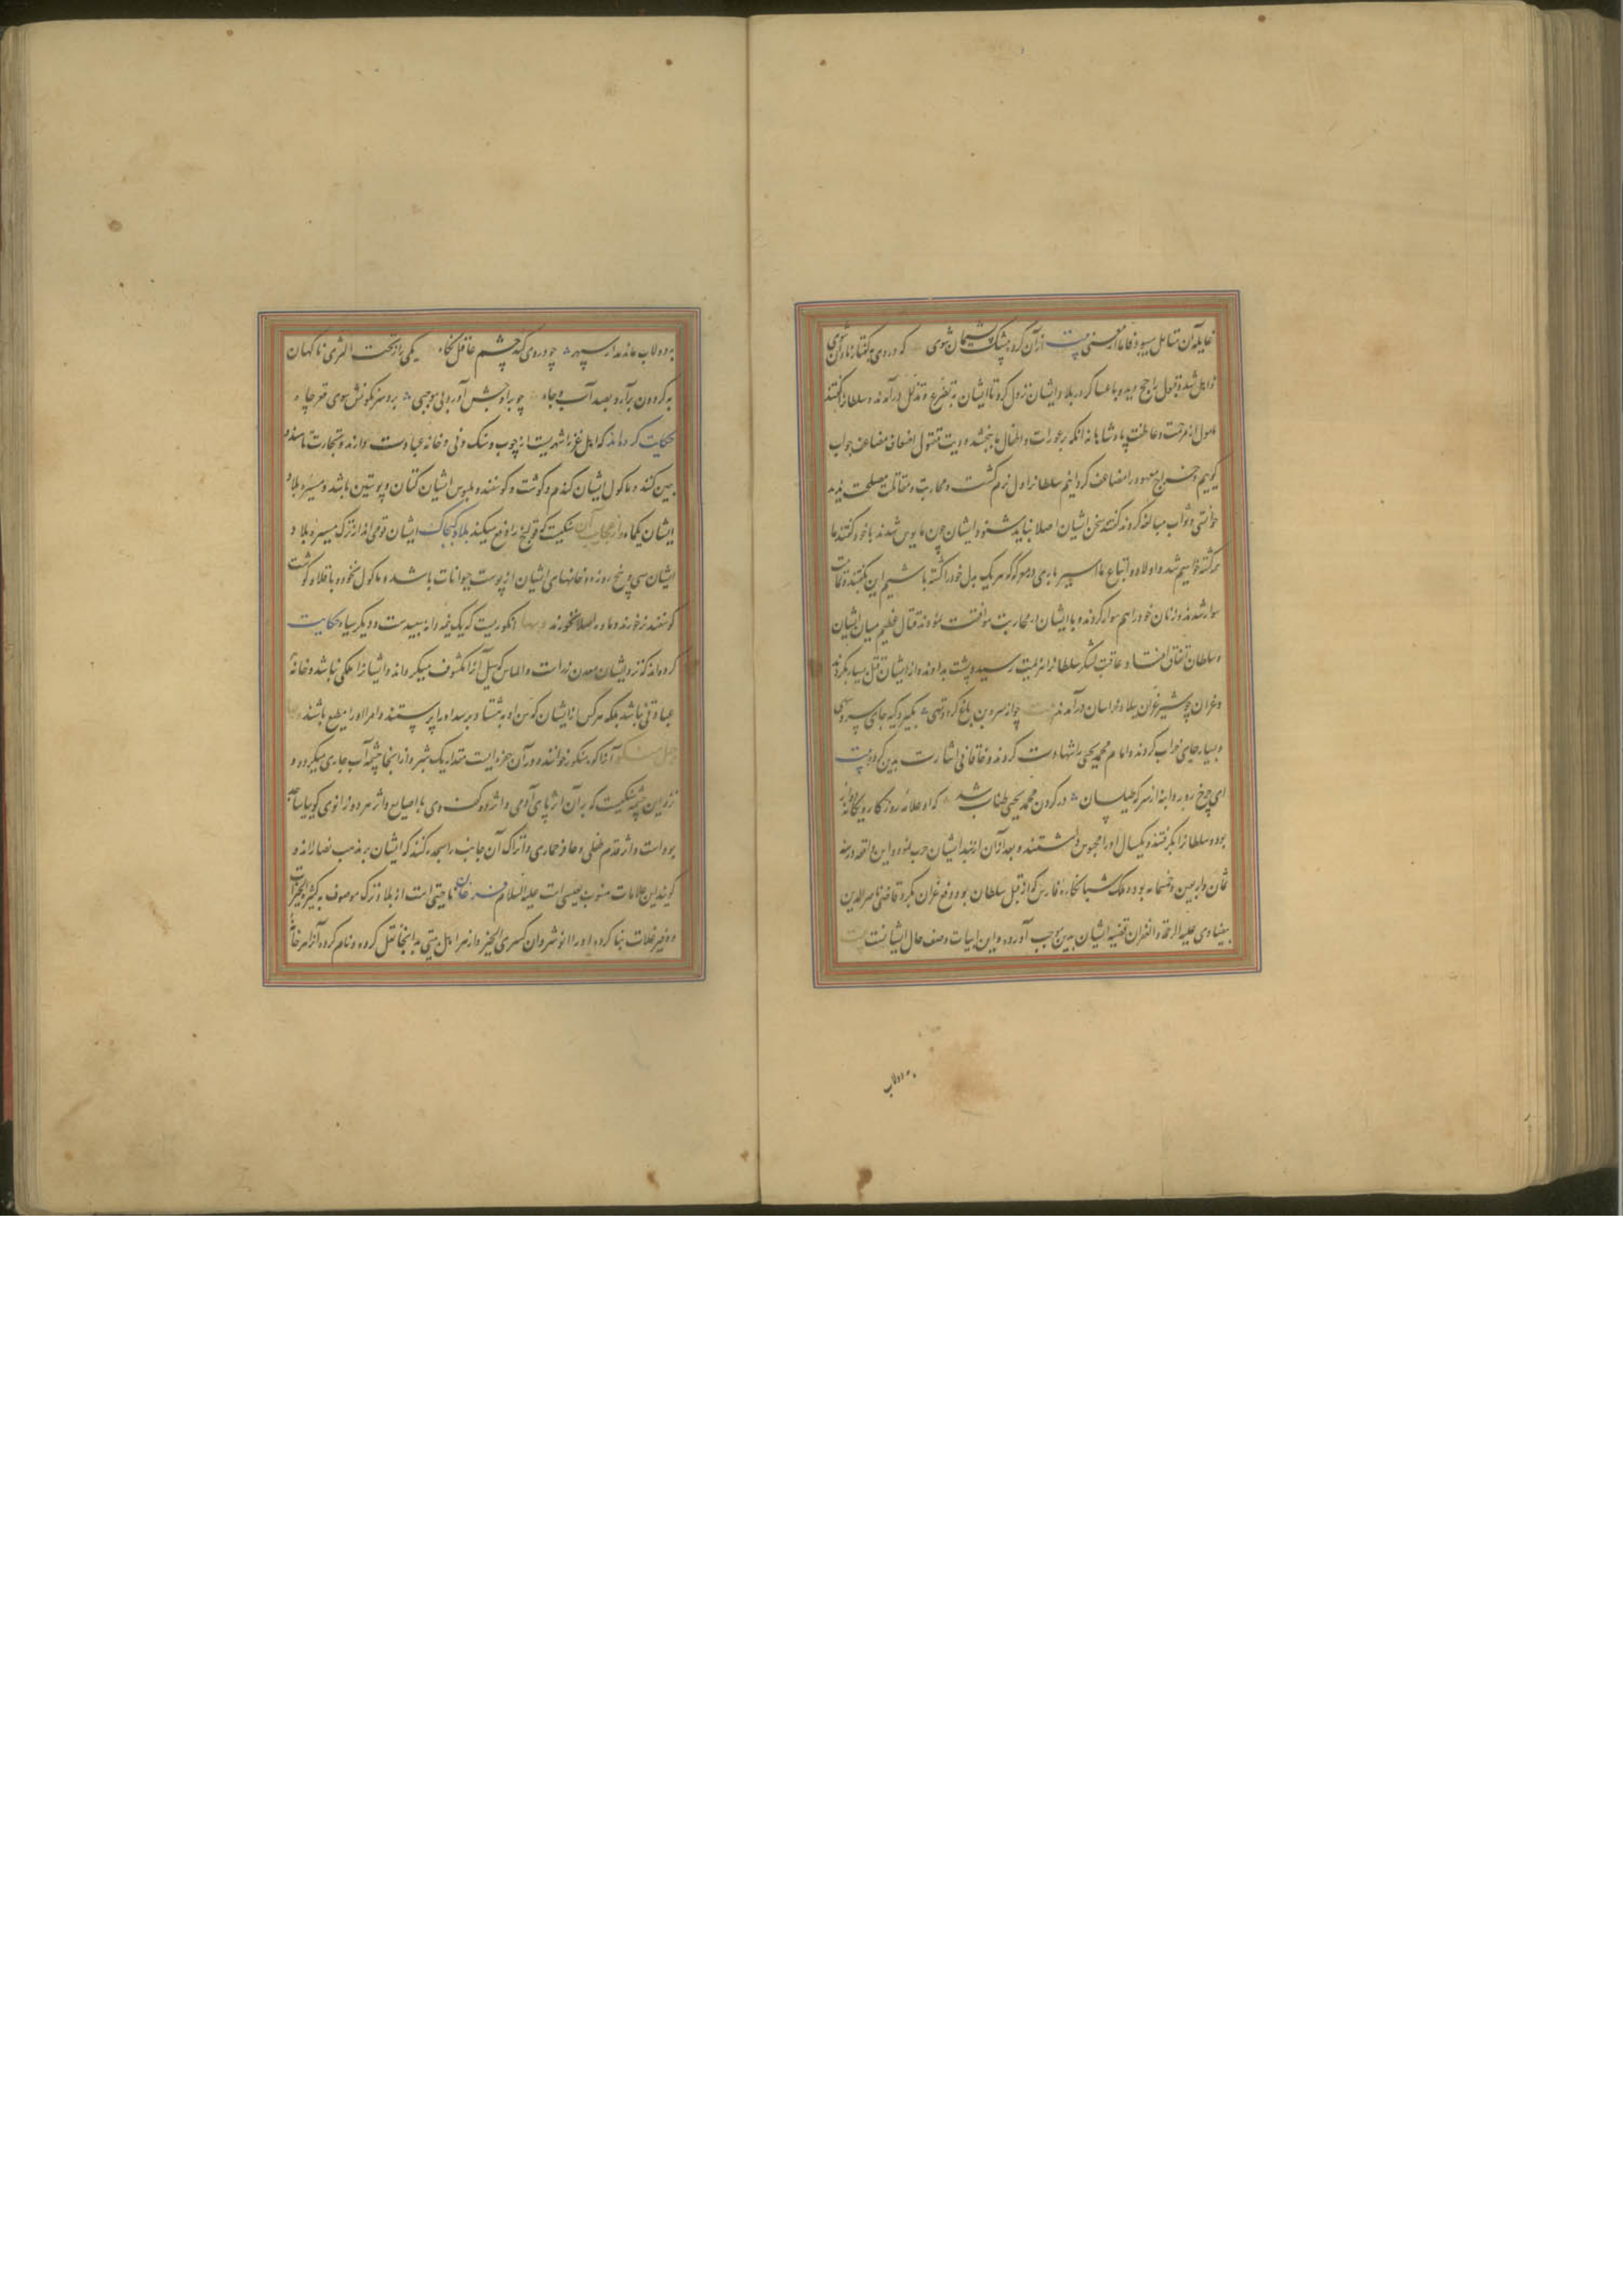 غایله آن متأمل میبود فاما از سستی بیت از آن کرده بیشک پشیمان شوی که در وی بگفتار نادان شوی
زایل شد و قول راجح دید و با عساکر در بلاد ایشان نزول کرد تا ایشان بتضرع و تذلل درآمدند و سلطانرا گفتند
مامول از مرحمت و عاطفت پادشاهانه آنکه بر عورات و اطفال ما ببخشد و دیت مقتول اضعاف مضاعف جواب
گوییم و خراج معهود را مضاعف گردانیم سلطانرا دل نرم گشت و محاربت و مقاتلت مصلحت ندید
مبالغه کردند که سخن ایشان اصلا نباید شنود ایشان چون مایوس شدند با خود گفتند ما
کشته خواهیم شد و اولاد و اتباع ما اسیر باری در معرکه هر یک بدل خود را کشته باشیم این بگفتند و
سوار شدند و زنان خود را هم سوار کردند و با ایشان در محاربت موافقت نمودند قتال عظیم میان ایشان
و سلطان اتفاق افتاد عاقبت لشکر سلطانرا هزیمت رسید و پشت بدادند و از ایشان قتل بسیار بکردند
و غزان چو شیر غران ببلاد خراسان درآمدند بیت چو از سرو بن باغ گردد تهی بگیرد گیه جای سرو سهی
و بسیار جای خراب کردند و امام محمد یحیی را شهادت کردند و خاقانی اشارت بدین کرده بیت
ای چرخ رو ردا بنه از سر که طیلسان در گردن محمد یحیی طناب شد که او علامه روزگار و یگانه
بود و سلطانرا بگرفتند و یکسال او را محبوس داشتند و بعد از آن از بند ایشان هرب نمود و این واقعه در سنه
ثمان و اربعین و خمسمایه بود و ملک شبانکاره فارس که از قبل سلطان بود دفع غزان بکرد قاضی ناصرالدین
بیضاوی علیه الرحمة و الغفران قضیه ایشان بدین موجب آورده و این ابیات وصف حال ایشانست بیت
بدولاب
بدولاب ماند مدار سپهر چو در وی کند چشم عاقل نگاه یکی را ز تحت الثری ناگهان
به گردون برآرد بصد آب و جاه چو بر اوجش آورد بی موجبی برد سرنگونش سوی قعر چاه
حکایت کرده‌اند که اهل غز را شهریست از چوب و سنگ و نی و خانه عبادت دارند و تجارت تا هند و
چین کنند و ماکول ایشان گندم و گوشت و گوسفند و ملبوس ایشان کتان و پوستین باشد و مسیره بلاد
ایشان یکماه و از عجایب آن سنگیست که قولنج را دفع میکند بلاد کیماک ایشان قومی‌اند از ترک مسیره بلاد
ایشان سی و پنج روزه و خانهای ایشان از پوست حیوانات باشد و ماکول نخود و باقلا و گوشت
گوسفند نر خورند و ماده اصلا نخورند و بها انگوریست که یک نیمه دانه سپیدست و دیگر سیاه حکایت
کرده‌اند که نزد ایشان معدن زر است و الماس که سیل آنرا مکشوف میگرداند و ایشانرا ملکی نباشد و خانه
عبادتی نباشد بلکه هر کس از ایشان که سن او به هشتاد برسد او را پرستند و امر او را مطیع باشند و بها
جبل منکور آنرا کوه منکور خوانند و در آن حفره‌ایست مقدار یک شبر و از اینجا چشمه آب جاری میگردد و
نزد این چشمه سنگیست که بر آن اثر پای آدمی و اثر دو کف دست وی با اصابع و اثر هر دو زانوی گوییا ساجد
بوده است و اثر قدم طفلی و حافر حماری و اتراک آن جانب را سجده کنند که ایشان بر مذهب نصارااند و
گویند این علامات منسوب بعیسی است علیه السلام فرغانه ناحیتی است از بلاد ترک موصوف به کثیر الخیرات
و وفیر غلات بنا کرده او را انوشروان کسری الخیر و از هر اهل بیتی به اینجا نقل کرده و نام کرده آنرا هر خانه